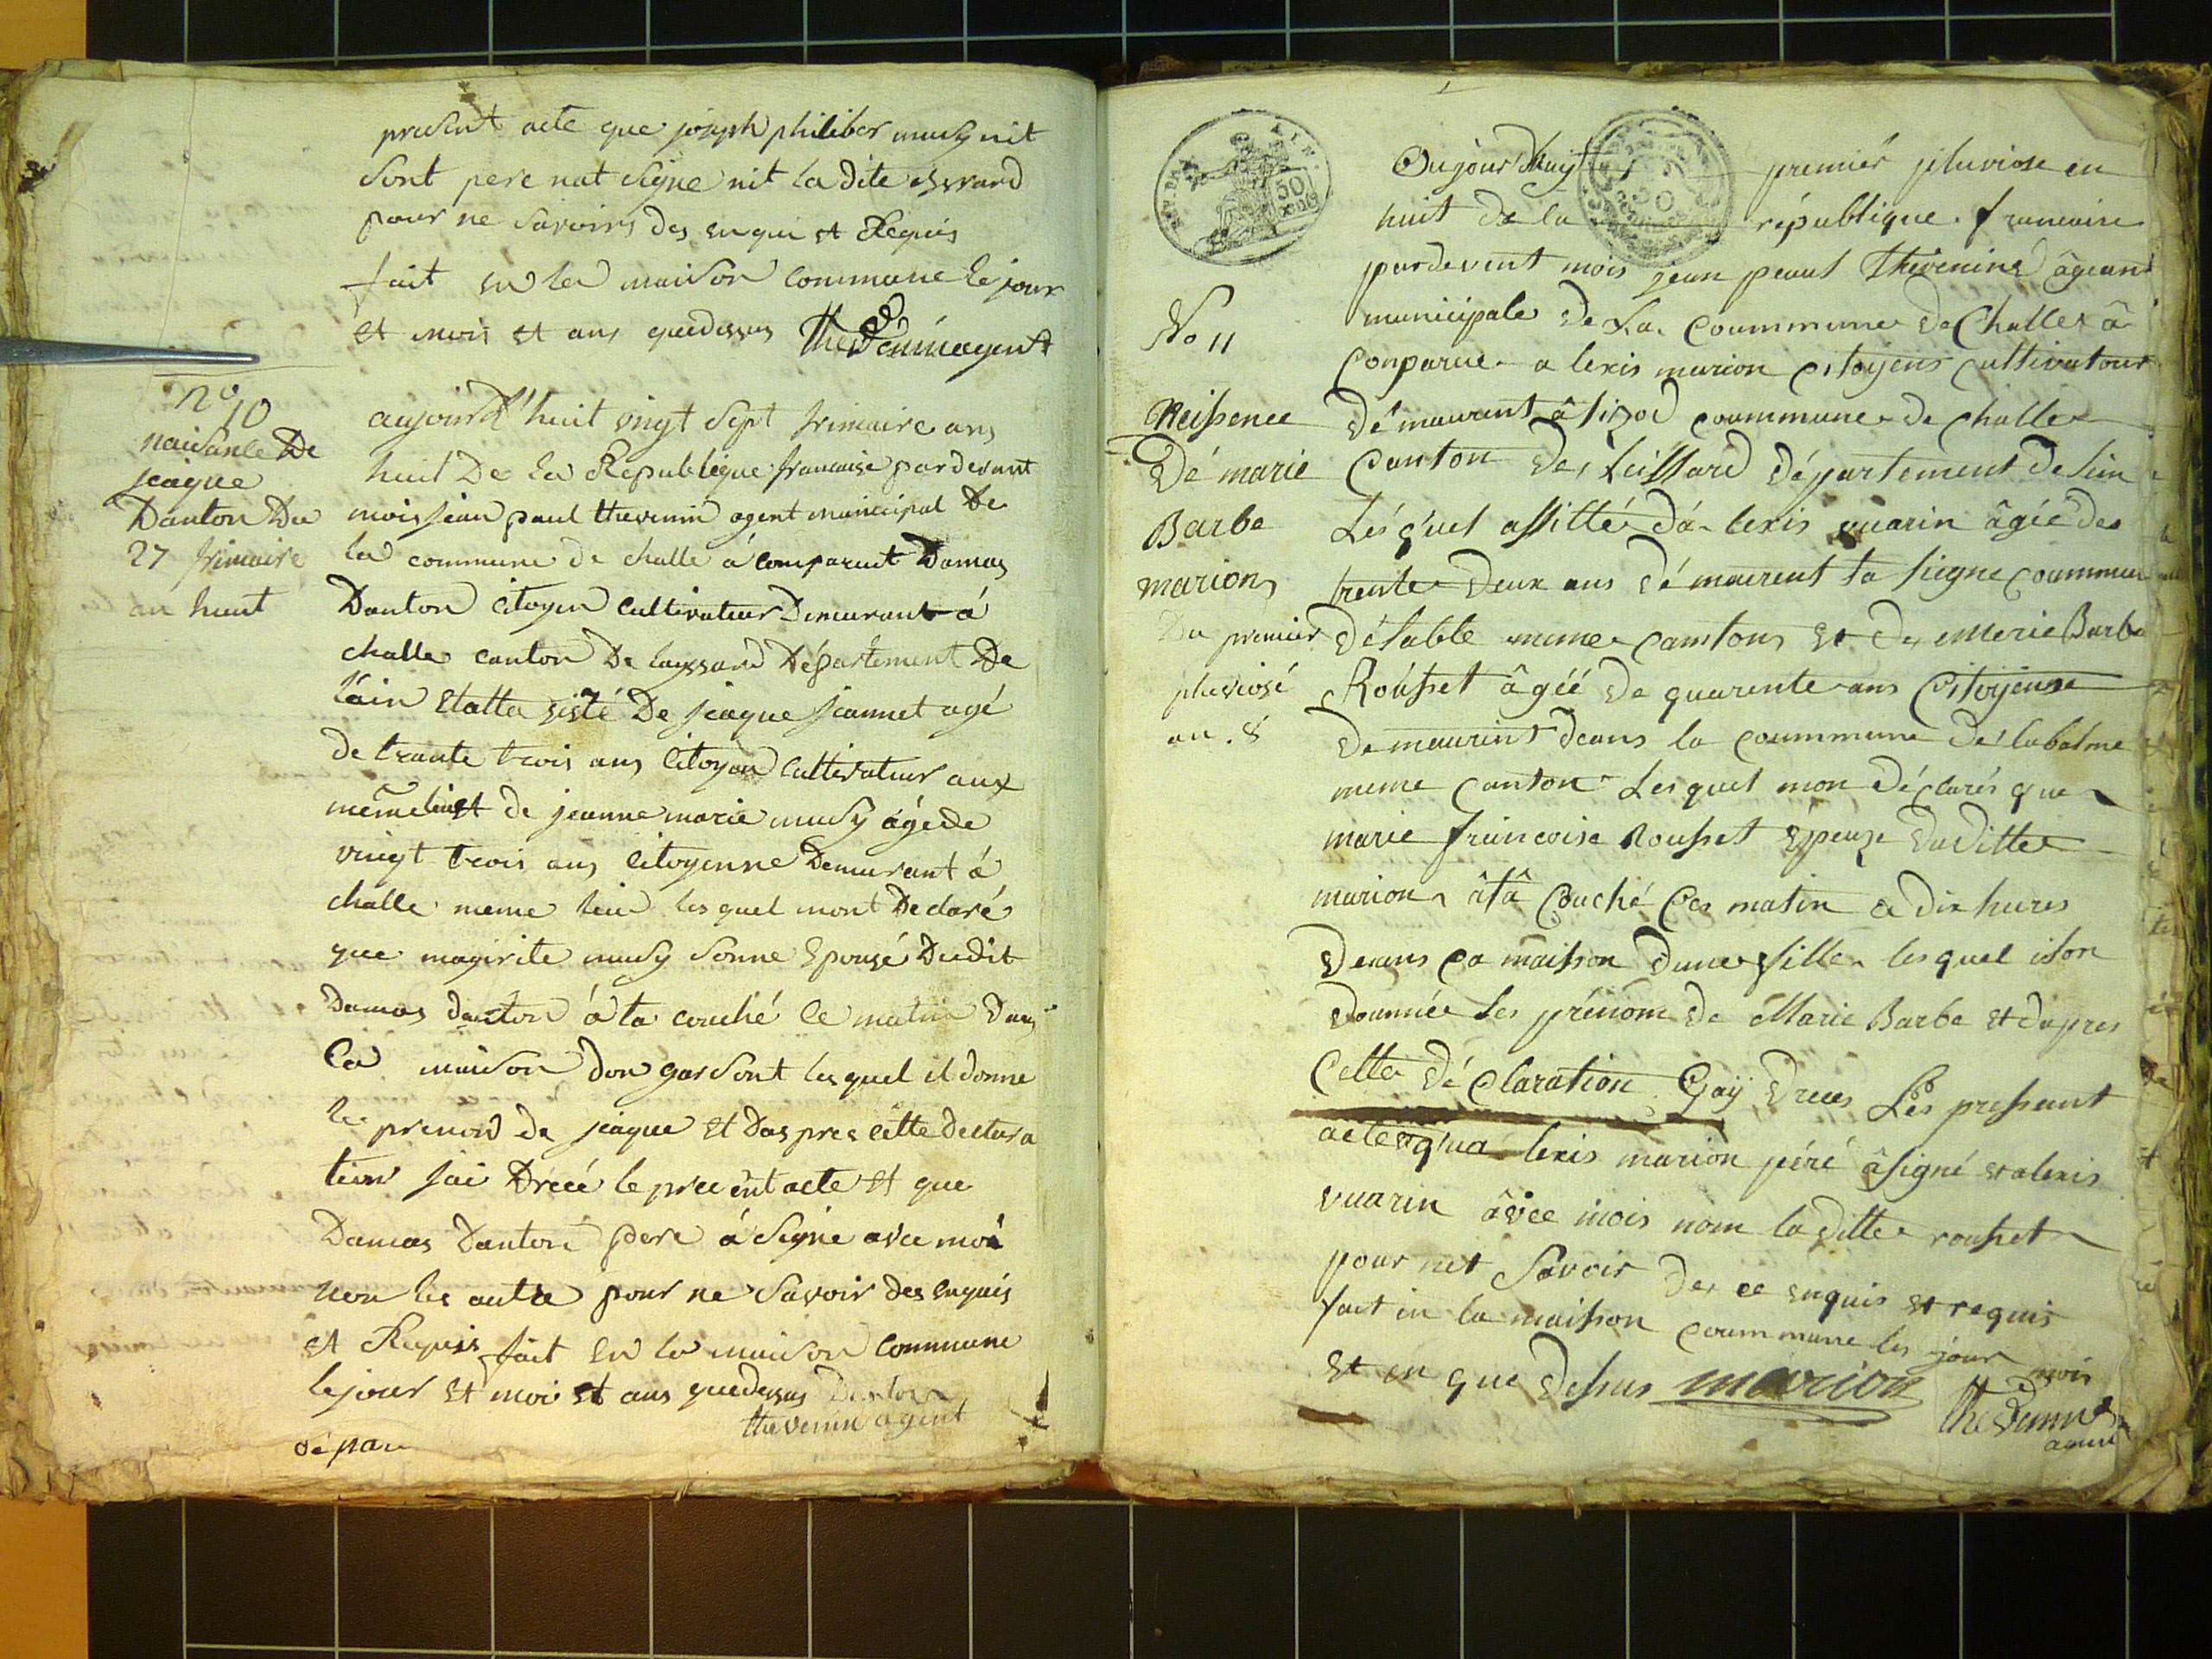 present acte que joseph philiber musy nit
sont pere nat signe nit la dite evrard
pour ne savoirs des enqui et Requis
fait en la maison commune le jour
et mois et ans quedessus Thevenin agent
n° 10
naisance De
jeaque
Danton Du
27 frimaire
an huit
aujourd'huit vingt sept frimaire ans
huit De la Republique francaise pardevant
mois jean paul thevenin agent municipal De
la commune de challe à comparut Damas
Danton citoyen cultivateur Demurant à
challe canton De leyssard Département De
láin etatta sisté De jeaque jeannet agé
de trante trois ans citoyen cultivateur aux
même lieu et de jeanne marie musy ágé de
vingt trois ans citoyenne Demurant á
challe meme lieu les quel mont Declaré
que magirite musy sonne Epousé Dudit
Damas danton á ta couché ce matin dans
Ca maison don garsont les quel il donne
le prenond de jeaque et das pres cette declara
tion jai Drecé le precent acte et que
Damas Danton pere á signé avec moi
non les autre pour ne savoir des enquis
et Requis fait en la maison commune
le jour et moi et ans quedessus Danton
thevenin agent
dépar
50
No 11
Neissence
Dé marie
Barbe
marion
Du premier
pluviosé
an . 8
Oujourdhuy premier pluviose en
huit de la république francaise
pardevent mois jean peaul Thevenins âgeant
municipale de La coummune de Challes â
Conparue a lexis marion citoyens cultivatour
démaurant â sizod coummune de challe
Canton de Leissard département de lin
Lésquel assitté dá lexis vuarin âgée des
trente deux ans démaurent ta signe coummun
désable meme cantons et de Merie Barbe
Rousset âgéé de quarente ans Citoyenne
demaurint deans la coummune de labalme
meme canton Les quel mon déclarés que
marie francoise Rousset epeuze duditte
marion âtâ couché ces matin a dix hures
deans ca maisson dune fille les quel ilon
donnée les prénom de Marie Barbe et dapres
Cette dé claration Gaÿ drecés Lés pressant
acte qua lexis marion péré âsigné et alexis
vuarin âvec mois nom laditte rousset
pour net savoir des ce enquis et requis
fait in la maisson coummune les jour mois
et en que dessus marion
thevenin
agent